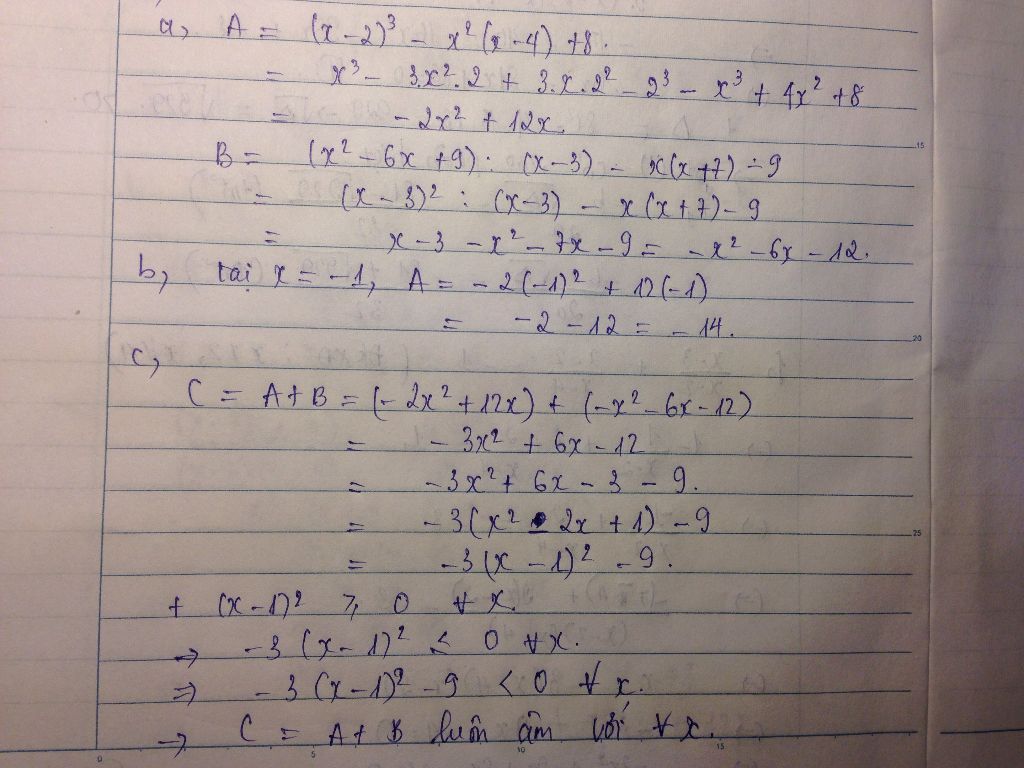 a, A = (x-2)³ - x²(x-4) +8.
= x³ - 3x².2 + 3.x.2² - 2³ - x³ + 4x² +8
= -2x² + 12x.
B = (x² - 6x +9) : (x-3) - x(x+7) - 9
= (x-3)² : (x-3) - x(x+7) - 9
= x-3 - x² - 7x - 9 = -x² - 6x - 12.
b, tại x = -1, A = -2(-1)² + 12(-1)
= -2 - 12 = -14.
c,
C = A+B = (-2x² + 12x) + (-x² - 6x - 12)
= -3x² + 6x - 12
= -3x² + 6x - 3 - 9.
= -3(x² - 2x + 1) - 9
= -3(x - 1)² - 9.
+ (x-1)² ≥ 0 ∀ x.
⇒ -3(x-1)² ≤ 0 ∀x.
⇒ -3(x-1)² - 9 < 0 ∀ x.
→ C = A+B luôn âm với ∀ x.